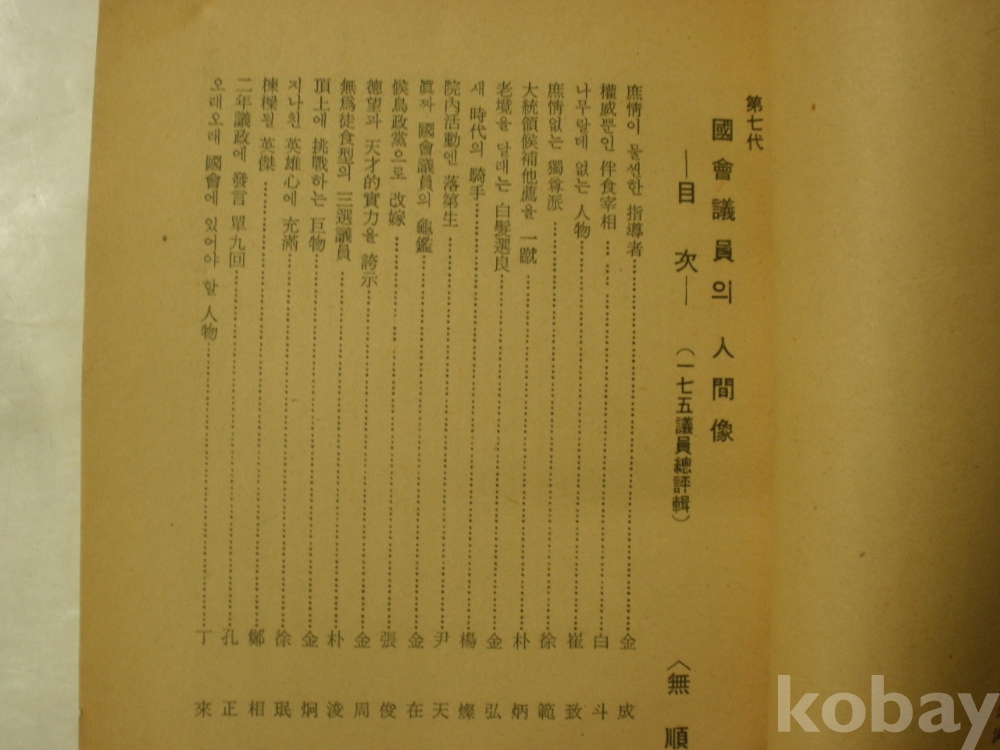 第七代
國會議員의 人間像
—目 次— (一七五議員總評輯) 〈無 順
庶情이 물씬한 指導者 金 成
權威뿐인 伴食宰相 白 斗
나무랄데 없는 人物 崔 致
庶情없는 獨尊派 徐 範
大統領候補他薦을 一蹴 朴 炳
老境을 달래는 白髮選良 金 弘
새 時代의 騎手 楊 燦
院內活動엔 落第生 尹 天
眞짜 國會議員의 龜鑑 金 在
候鳥政黨으로 改嫁 張 俊
德望과 天才的實力을 誇示 金 周
無爲徒食型의 三選議員 朴 浚
頂上에 挑戰하는 巨物 金 炯
지나친 英雄心에 充滿 徐 珉
棟樑될 英傑 鄭 相
二年議政에 發言 單九回 孔 正
오래오래 國會에 있어야 할 人物 丁 來
kobay